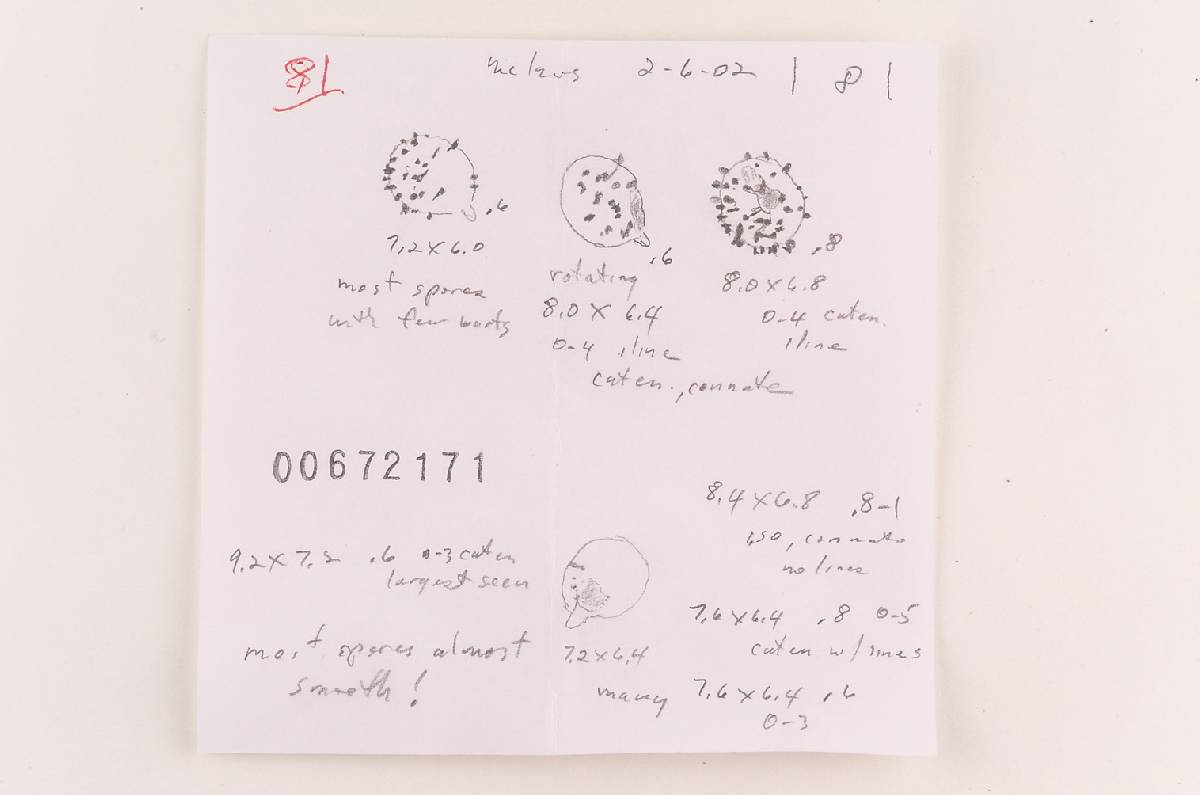 81
Melzers 2-6-02 | 8 |
.6
7.2 x 6.0
most spores
with few warts
.6
rotating
8.0 x 6.4
0-4 1 line
caten., connate
.8
8.0 x 6.8
0-4 caten.
1 line
00672171
9.2 x 7.2 .6 0-3 caten
largest seen
most spores almost
smooth!
7.2 x 6.4
8.4 x 6.8 .8-1
iso, connate
no lines
7.6 x 6.4 .8 0-5
caten w/ lines
many 7.6 x 6.4 .6
0-3